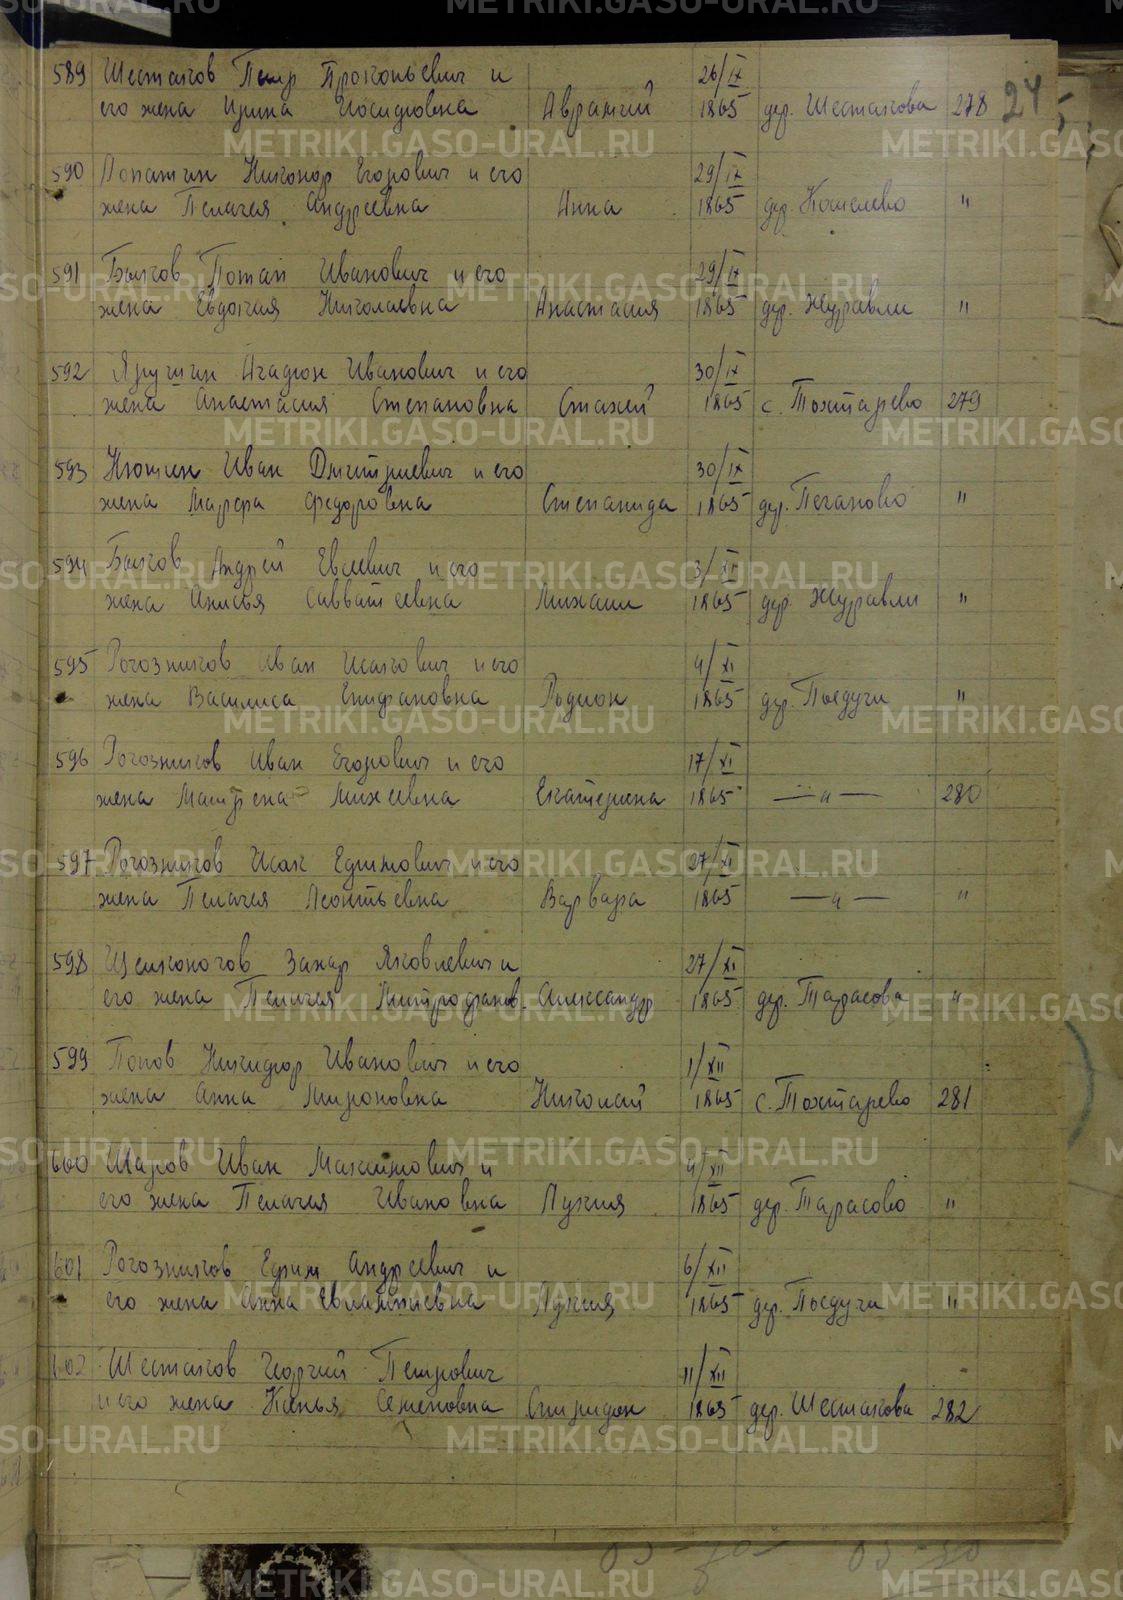 24
589 Шестаков Петр Прокопьевич и
его жена Ирина Иосифовна Авраамий 26/IX 1865 дер. Шестакова 278
590 Лопатин Никонор Егорович и его
жена Пелагея Андреевна Анна 29/IX 1865 дер. Кошелево "
591 Быков Потап Иванович и его
жена Евдокия Николаевна Анастасия 29/IX 1865 дер. Журавли "
592 Ярушин Агафон Иванович и его
жена Анастасия Степановна Стахей 30/IX 1865 с. Тохтарево 279
593 Нютин Иван Дмитриевич и его
жена Марфа Федоровна Степанида 30/IX 1865 дер. Поганово "
594 Быков Андрей Евсеевич и его
жена Анисья Савватеевна Михаил 3/XI 1865 дер. Журавли "
595 Рогозников Иван Исакович и его
жена Василиса Епифановна Родион 4/XI 1865 дер. Поедуги "
596 Рогозников Иван Егорович и его
жена Матрена Михеевна Екатерина 17/XI 1865 — " — 280
597 Рогозников Исак Ефимович и его
жена Пелагея Леонтьевна Варвара 27/XI 1865 — " — "
598 Щелконогов Захар Яковлевич и
его жена Пелагея Митрофанов. Александр 27/XI 1865 дер. Тарасово "
599 Попов Никифор Иванович и его
жена Анна Мироновна Николай 1/XII 1865 с. Тохтарево 281
600 Шаров Иван Максимович и
его жена Пелагея Ивановна Лукия 4/XII 1865 дер. Тарасово "
601 Рогозников Ефим Андреевич и
его жена Анна Евлампиевна Лукия 6/XII 1865 дер. Поедуги "
602 Шестаков Георгий Петрович
и его жена Ксенья Семеновна Спиридон 11/XII 1865 дер. Шестакова 282
METRIKI.GASO-URAL.RU